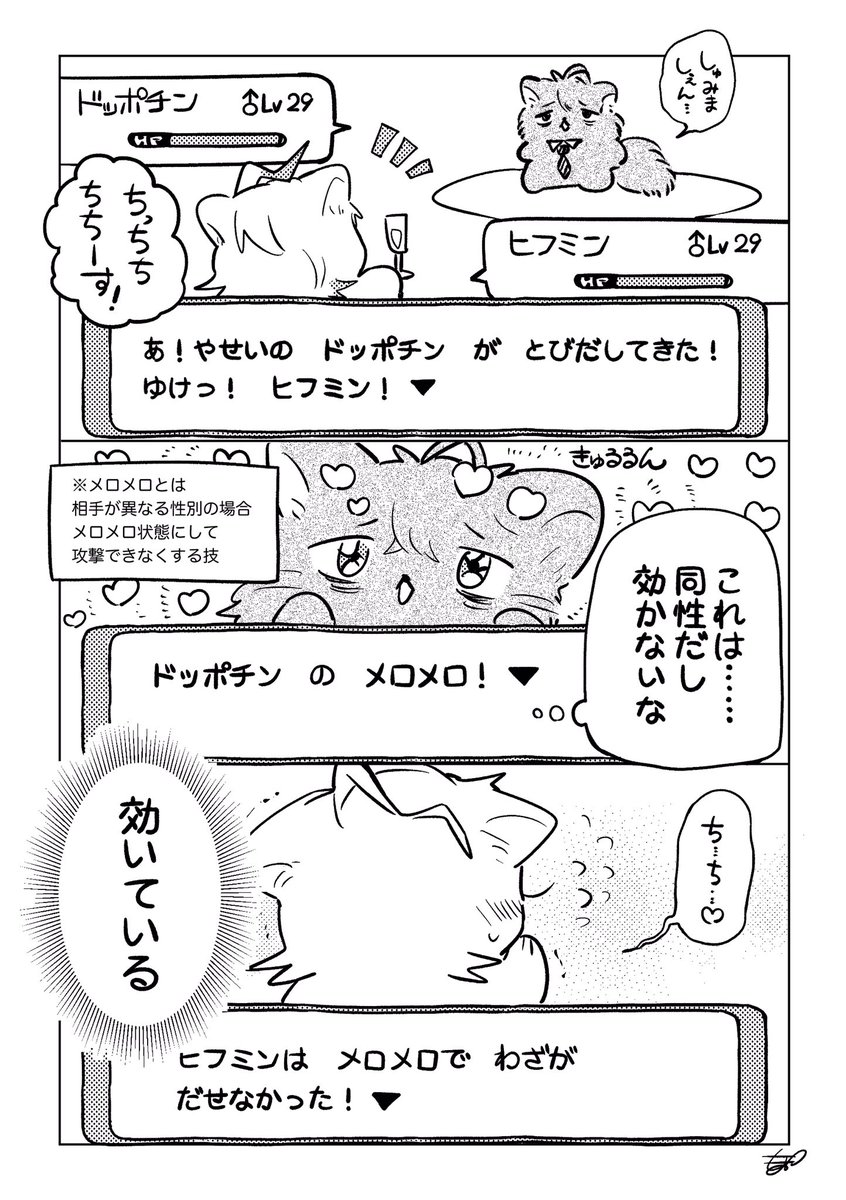 しゅみま
しぇん…
ドッポチン ♂Lv29
HP
ちっちち
ちちーす！
ヒフミン ♂Lv29
HP
あ！やせいの ドッポチン が とびだしてきた！
ゆけっ！ ヒフミン！▼
きゅるるん
※メロメロとは
相手が異なる性別の場合
メロメロ状態にして
攻撃できなくする技
これは……
同性だし
効かないな
ドッポチン の メロメロ！▼
ち…ち…♡
効いている
ヒフミンは メロメロで わざが
だせなかった！▼